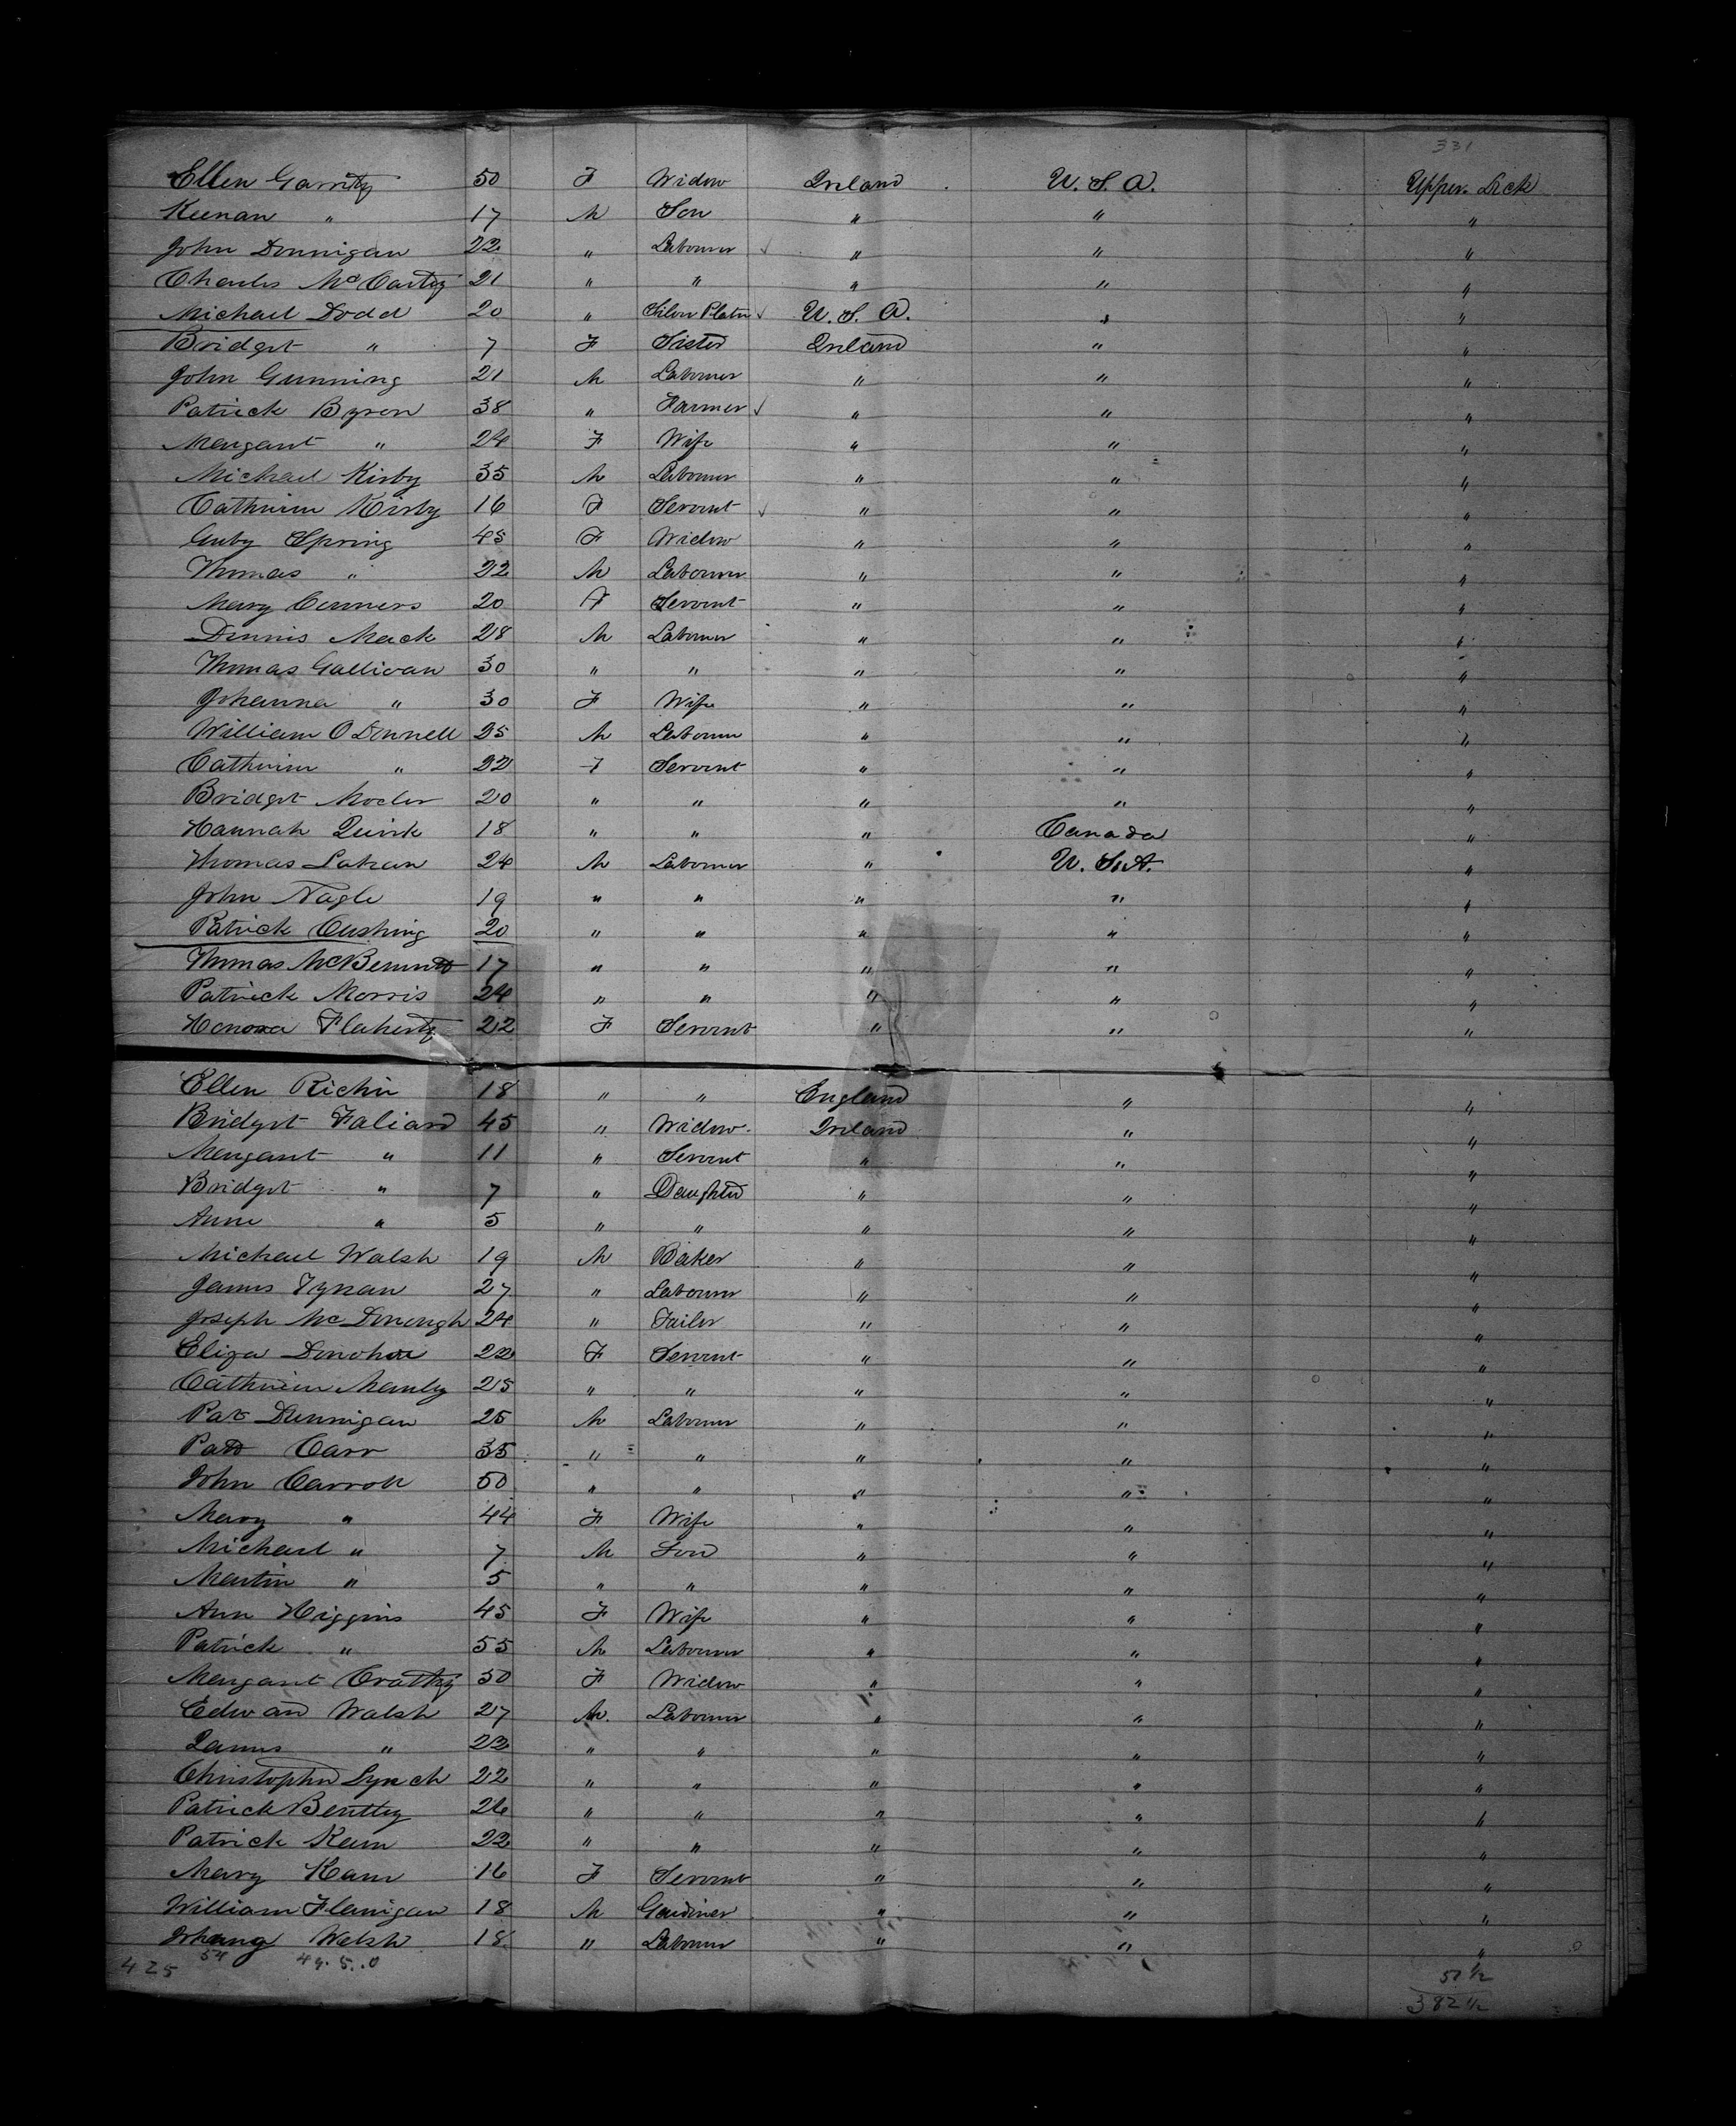 331
Ellen Garrity 50 F Widow Ireland U. S. A. Upper Deck
Keenan " 17 M Son " " "
John Donnigan 22 " Labourer " " "
Charles McCarty 21 " " " " "
Michael Dodd 20 " Silver Plater U. S. A. " "
Bridget " 7 F Sister Ireland " "
John Gunning 21 M Labourer " " "
Patrick Byron 38 " Farmer " " "
Margaret " 24 F Wife " " "
Michael Kirby 35 M Labourer " " "
Catherine Kirby 16 F Servant " " "
Spring 45 F Widow " " "
Thomas " 22 M Labourer " " "
Mary Conners 20 F Servant " " "
Dennis Mack 28 M Labourer " " "
Thomas Gallivan 30 " " " " "
Johanna " 30 F Wife " " "
William O Donnell 25 M Labourer " " "
Catherine " 22 F Servant " " "
Bridget 20 " " " " "
Hannah Quirk 18 " " " Canada "
Thomas Lahan 24 M Labourer " U. S. A. "
John Nagle 19 " " " " "
Patrick Cushing 20 " " " " "
Thomas 17 " " " " "
Patrick Morris 24 " " " " "
Honora Flaherty 22 F Servant " " "
Ellen Richie 18 " " England " "
Bridget Faliard 45 " Widow Ireland " "
Margaret " 11 " Servant " " "
Bridget " 7 " Daughter " " "
Anne " 5 " " " " "
Michael Walsh 19 M Baker " " "
James Tynan 27 " Labourer " " "
Joseph McDonough 24 " Tailor " " "
Eliza Donohue 22 F Servant " " "
Catherine Manly 25 " " " " "
Pat Dunnigan 25 M Labourer " " "
Patt Carr 35 " " " " "
John Carroll 50 " " " " "
Mary " 44 F Wife " " "
Michael " 7 M Son " " "
Martin " 5 " " " " "
Ann Higgins 45 F Wife " " "
Patrick " 55 M Labourer " " "
Margaret Crattey 50 F Widow " " "
Edward Walsh 27 M. Labourer " " "
James " 22 " " " " "
Christopher Lynch 22 " " " " "
Patrick Bentley 26 " " " " "
Patrick Keam 22 " " " " "
Mary Kam 16 F Servant " " "
William Flanigan 18 M Gardiner " " "
Walsh 18 " Labourer " " "
425 54 49. 5. .0 51 1/2
382 1/2